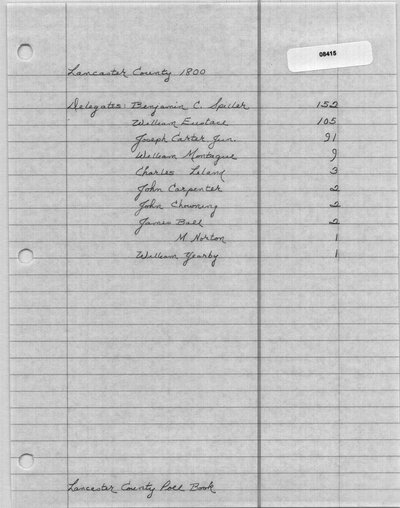 08415
Lancaster County 1800
Delegates: Benjamin C. Spiller 152
William Eustace 105
Joseph Carter Jun. 91
William Montague 9
Charles Leland 3
John Carpenter 2
John Chowning 2
James Ball 2
M. Norton 1
William Yearby 1
Lancaster County Poll Book